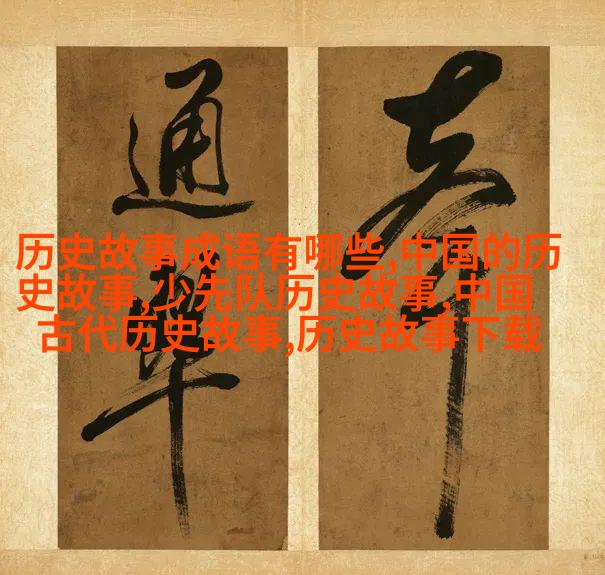 历史故事成语有哪些,中国的历
史故事,少先队历史故事,中国
古代历史故事,历史故事下载
通